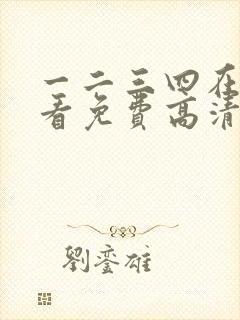 一二三四在
看免费高清
劉銮雄